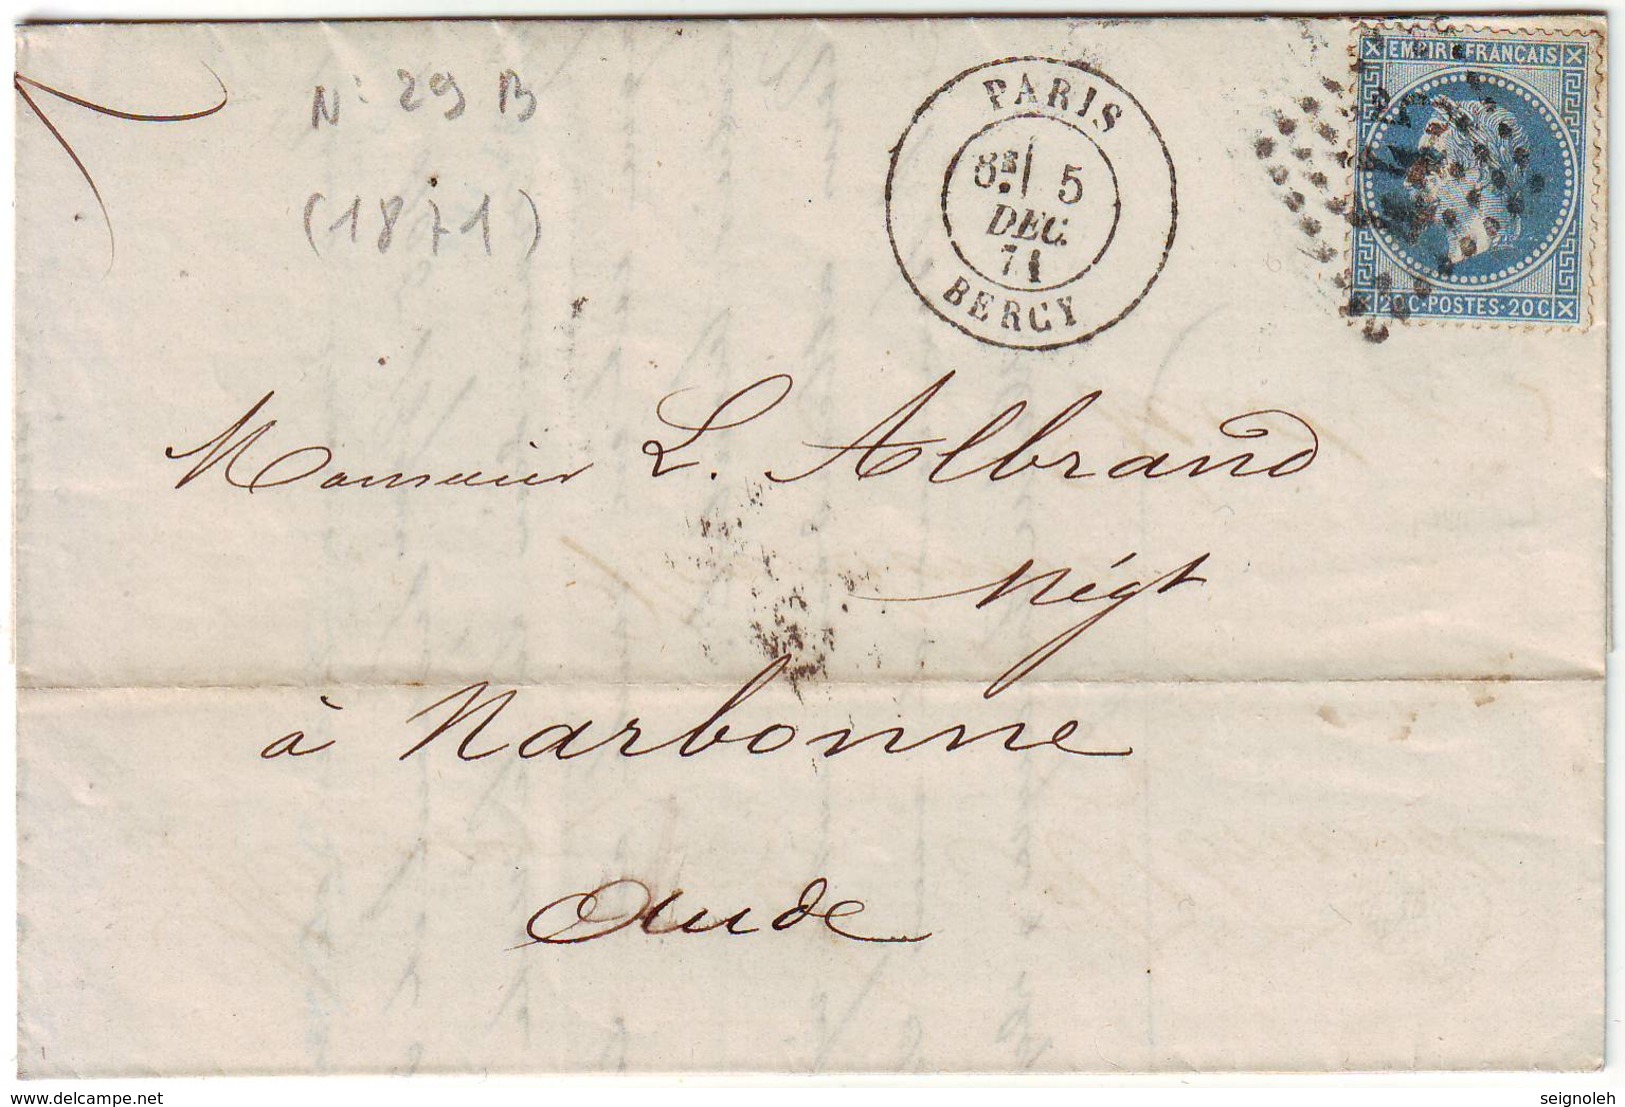 N: 29 B
(1871)
PARIS
8E 5
DEC.
71
BERCY
EMPIRE FRANÇAIS
20 C · POSTES · 20 C
Monsieur L. Albrand
Négt
à Narbonne
Aude
delcampe.net
seignoleh